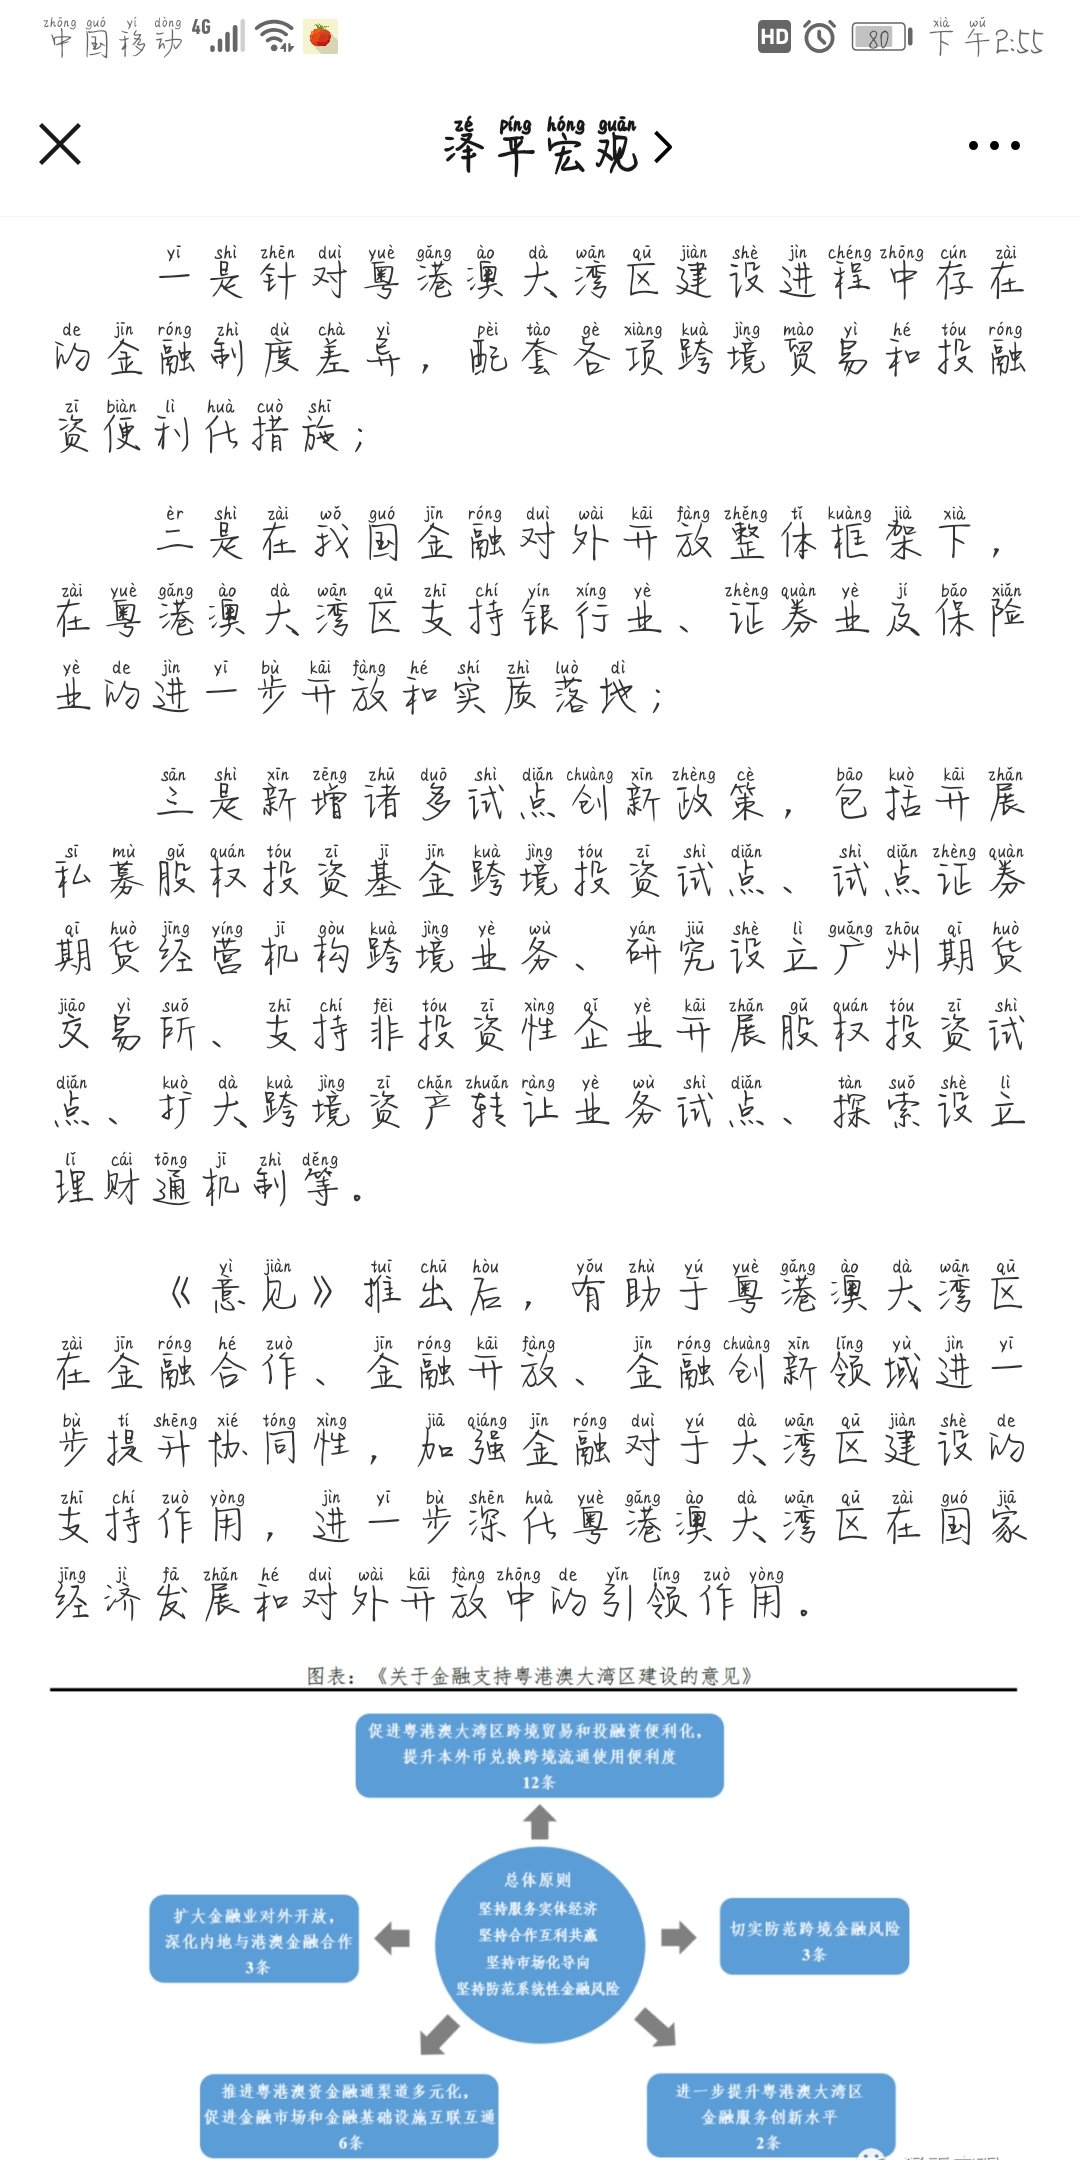 中国移动 4G HD 80 下午2:55
泽平宏观
一是针对粤港澳大湾区建设进程中存在
的金融制度差异，配套各项跨境贸易和投融
资便利化措施；
二是在我国金融对外开放整体框架下，
在粤港澳大湾区支持银行业、证券业及保险
业的进一步开放和实质落地；
三是新增诸多试点创新政策，包括开展
私募股权投资基金跨境投资试点、试点证券
期货经营机构跨境业务、研究设立广州期货
交易所、支持非投资性企业开展股权投资试
点、扩大跨境资产转让业务试点、探索设立
理财通机制等。
《意见》推出后，有助于粤港澳大湾区
在金融合作、金融开放、金融创新领域进一
步提升协同性，加强金融对于大湾区建设的
支持作用，进一步深化粤港澳大湾区在国家
经济发展和对外开放中的引领作用。
图表：《关于金融支持粤港澳大湾区建设的意见》
促进粤港澳大湾区跨境贸易和投融资便利化，
提升本外币兑换跨境流通使用便利度
12条
总体原则
坚持服务实体经济
坚持合作互利共赢
坚持市场化导向
坚持防范系统性金融风险
扩大金融业对外开放，
深化内地与港澳金融合作
3条
切实防范跨境金融风险
3条
推进粤港澳资金融通渠道多元化，
促进金融市场和金融基础设施互联互通
6条
进一步提升粤港澳大湾区
金融服务创新水平
2条